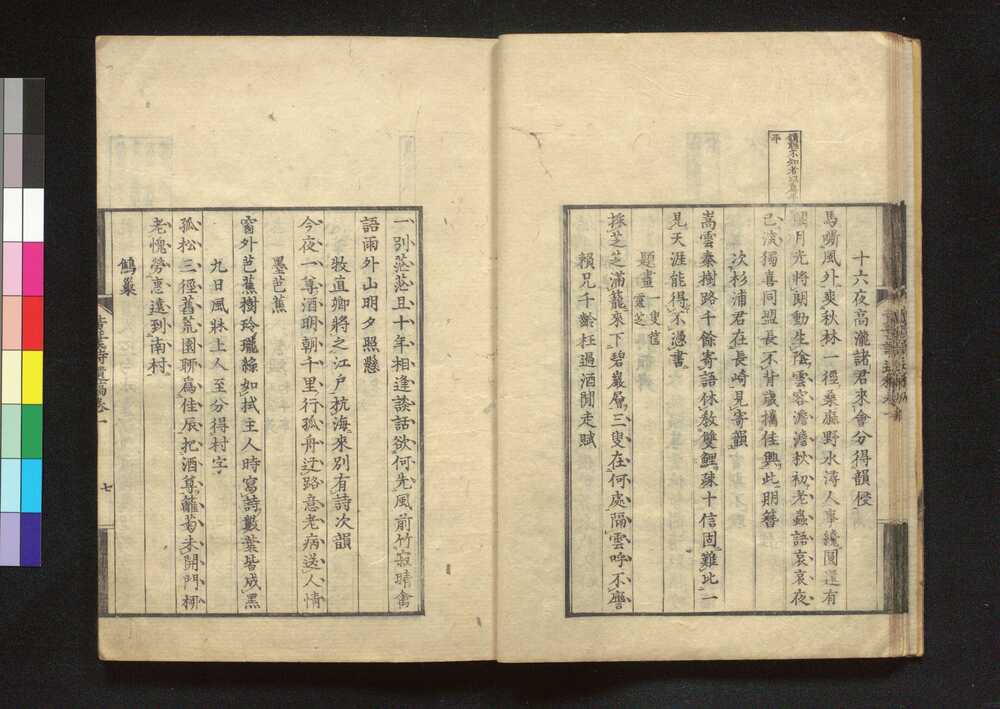 十六夜高瀧諸君來會分得韻侵
馬嘶風外爽秋林一徑桑麻野水潯人事纔圓還有
月光將閒動生陰雲容澹澹秋初老蟲語哀哀夜
已深獨喜同盟長不背歲攜佳興此朋簪
次杉浦君在長崎見寄韻
嵩雲秦樹路千餘寄語休教雙鯉疎十信固難此一
見天涯能得不憑書
題畫一叟舊靈芝
採芝芝滿籠來下碧巖層三叟在何處隔雲呼不譍
賴兄千齡枉過酒間走賦
一別茫茫且十年相逢談話欲何先風前竹寂晴禽
語雨外山明夕照懸
牧直卿將之江戶杭海來別有詩次韻
今夜一尊酒明朝千里行孤舟迂路意老病送人情
墨芭蕉
窗外芭蕉樹玲瓏綠如拭主人時寫詩數葉皆成黑
九日風牀上人至分得村字
孤松三徑舊荒園聊爲佳辰把酒尊籬菊未開門柳
老愧勞惠遠到南村
鷦巢
七